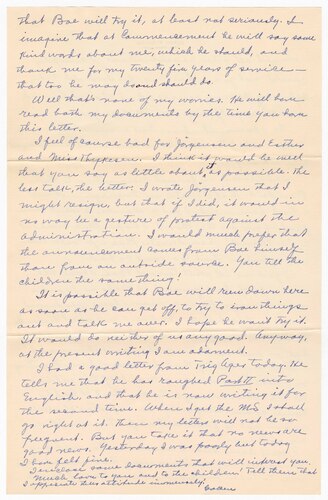 that Boe will try it, at least not seriously. I
imagine that at Commencement he will say some
kind words about me, which he should, and
thank me for my twenty five years of service—
that too he may do and should do.
Well that's none of my worries. He will have
read both my documents by the time you have
this letter.
I feel of course bad for Jörgensen and Esther
and Miss I think it would be well
that you say as little about it as possible. The
less talk, the better. I wrote Jörgensen that I
might resign, but that if I did, it would in
no way be a gesture of protest against the
administration. I would much prefer that
the announcement comes from Boe himself
than from an outside source. You tell the
children the same thing!
It is possible that Boe will run down here
as soon as he can get off, to try to iron things
out and talk me over. I hope he wont try it.
It would do neither of us any good. Anyway,
at the present writing I am adamant.
I had a good letter from Trig Ager today. He
tells me that he has roughed Part II into
English, and that he is now writing it for
the second time. When I get the MS I shall
go right at it. Then my letters will not be so
frequent. But you take it that no news are
good news. Yesterday I was poorly but today
I have felt fine.
I enclose some documents that will interest you.
Much love to you and to the children! Tell them that
I appreciate their attitude immensely.